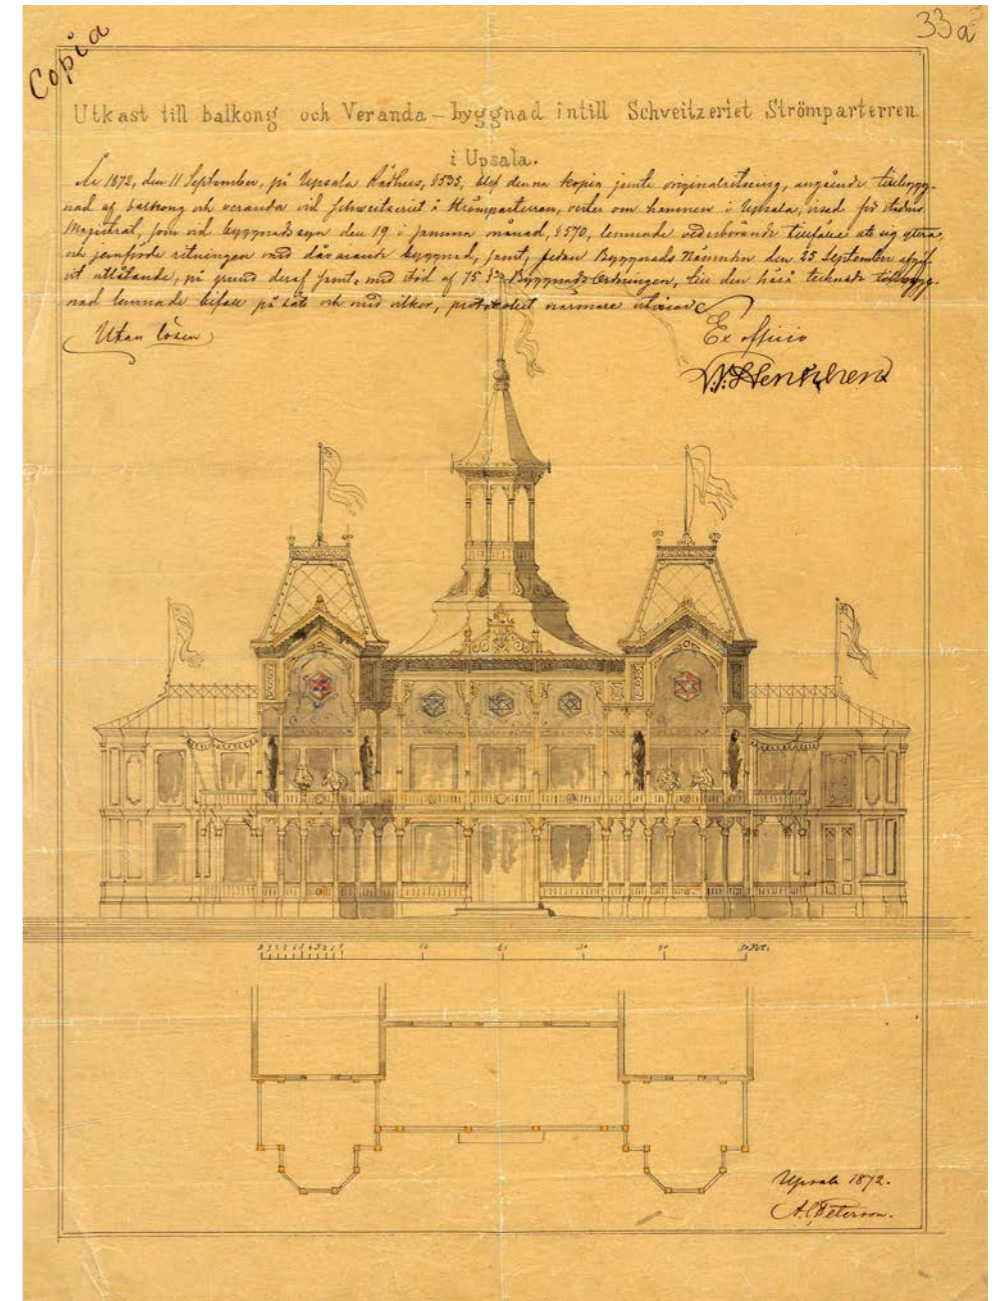 Copia
33a
Utkast till balkong och Veranda-byggnad intill Schveitzeriet Strömparterren
i Upsala.
År 1872, den 11 September, på Upsala Rådhus, §535, blef denna kopia jemte originalritning, angående tillbygg-
nad af balkong och veranda vid Schweitzeriet i Strömparterren, vester om hamnen i Upsala, visad för stadens
Magistrat, som vid byggnadssyn den 19 i samma månad, §570, lemnade vederbörande tillfälle att sig yttra,
och jemförde ritningen med dåvarande byggnad, samt, sedan Byggnads Nämnden den 25 September afgif-
vit utlåtande, på grund deraf samt med stöd af 15 § Byggnads Ordningen, till den härå tecknade tillbygg-
nad lemnade bifall på sätt och med vilkor, protokollet närmare utvisar
(Utan lösen)
Ex officio
10
20
30
40
50 Fot.
Upsala 1872.
A. C. Peterson.